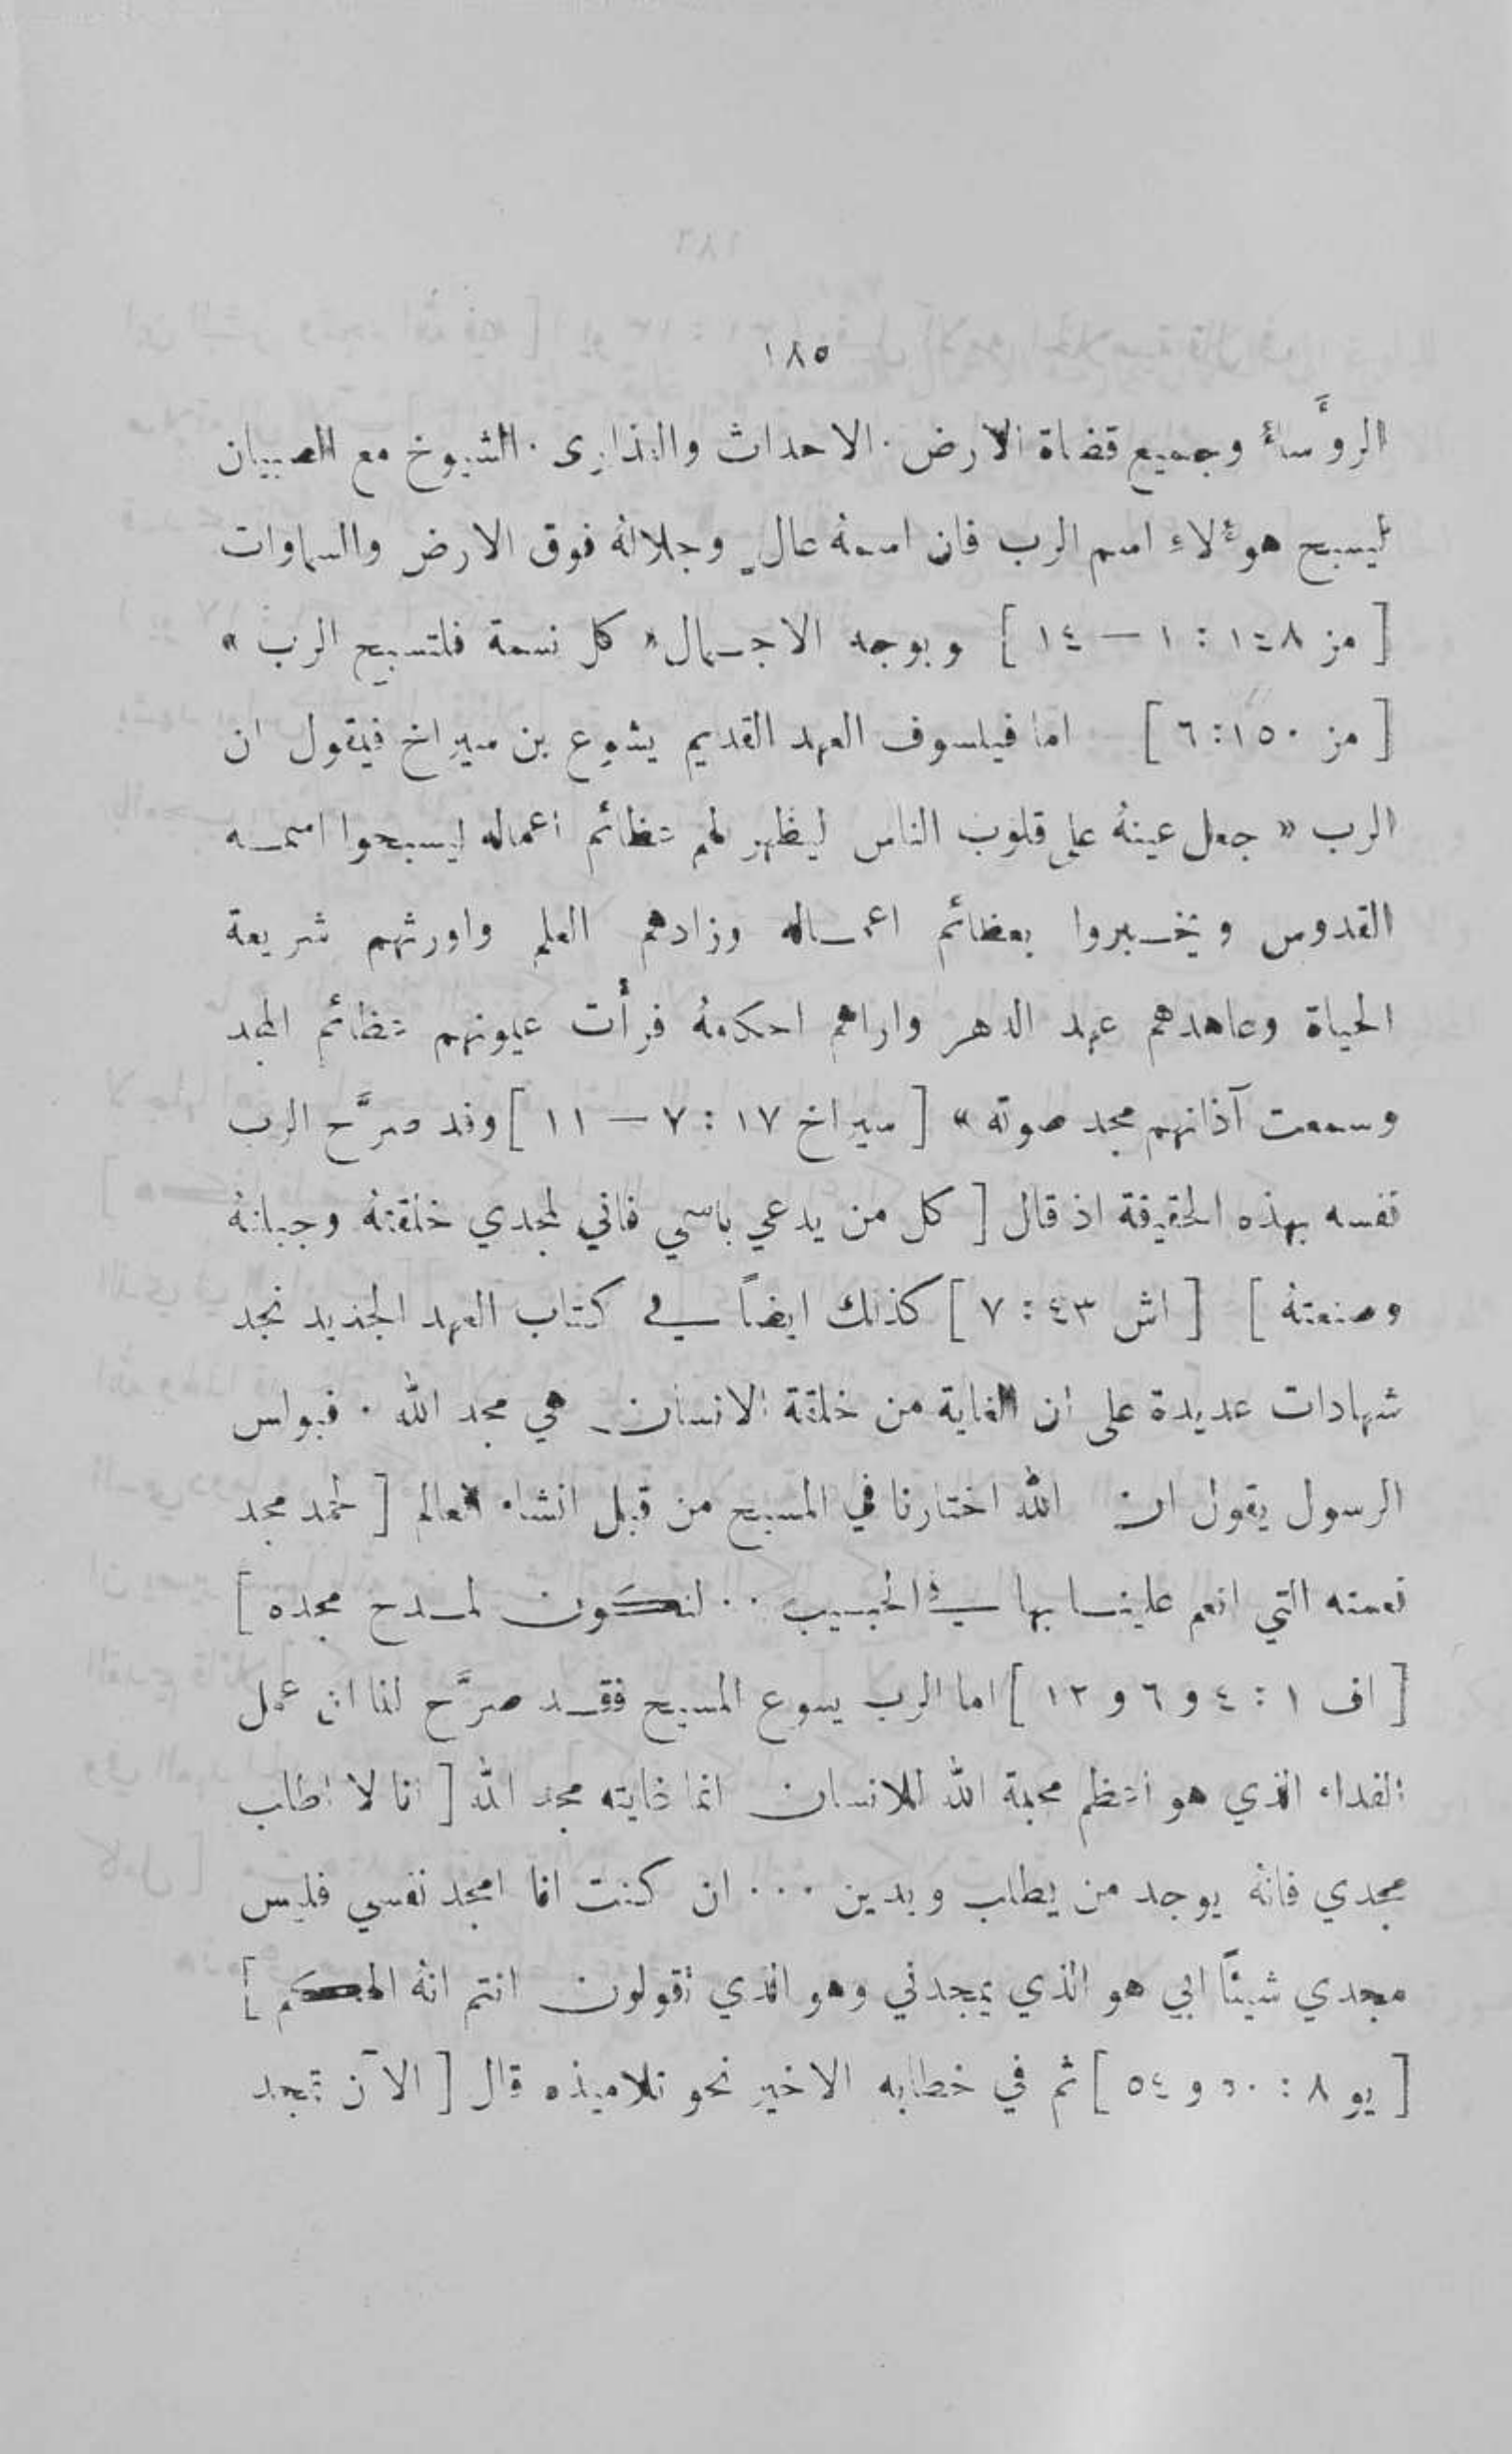 ١٨٥
الروَّساءُ وجميع قضاة الارض . الاحداث والعذارى . الشيوخ مع الصبيان
ليسبح هوءُلاءِ اسم الرب فان اسمهُ عالٍ وجلالهُ فوق الارض والسماوات
[ مز ١٤٨ : ١ — ١٤ ] وبوجه الاجمال « كل نسمة فلتسبح الرب »
[ مز ١٥٠ : ٦ ] اما فيلسوف العهد القديم يشوع بن سيراخ فيقول ان
الرب « جعل عينهُ على قلوب الناس ليظهر لهم عظائم اعماله ليسبحوا اسمه
القدوس ويخبروا بعظائم اعماله وزادهم العلم واورثهم شريعة
الحياة وعاهدهم عهد الدهر واراهم احكامهُ فرأت عيونهم عظائم المجد
وسمعت آذانهم مجد صوته » [ سيراخ ١٧ : ٧ — ١١ ] وقد صرَّح الرب
نفسه بهذه الحقيقة اذ قال [ كل من يدعي باسمي فاني لمجدي خلقتهُ وجبلتهُ
وصنعتهُ ] [ اش ٤٣ : ٧ ] كذلك ايضاً في كتاب العهد الجديد نجد
شهادات عديدة على ان الغاية من خلقة الانسان هي مجد الله . فبولس
الرسول يقول ان الله اختارنا في المسيح من قبل انشاء العالم [ لحمد مجد
نعمته التي انعم علينا بها في الحبيب . . لنكون لمدح مجده ]
[ اف ١ : ٤ و ٦ و ١٢ ] اما الرب يسوع المسيح فقد صرَّح لنا ان عمل
الفداء الذي هو اعظم محبة الله للانسان انما غايته مجد الله [ انا لا اطلب
مجدي فانهُ يوجد من يطلب ويدين . . . ان كنت انا امجد نفسي فليس
مجدي شيئاً ابي هو الذي يمجدني وهو الذي تقولون انتم انهُ الهكم ]
[ يو ٨ : ٥٠ و ٥٤ ] ثم في خطابه الاخير نحو تلاميذه قال [ الآن تمجد